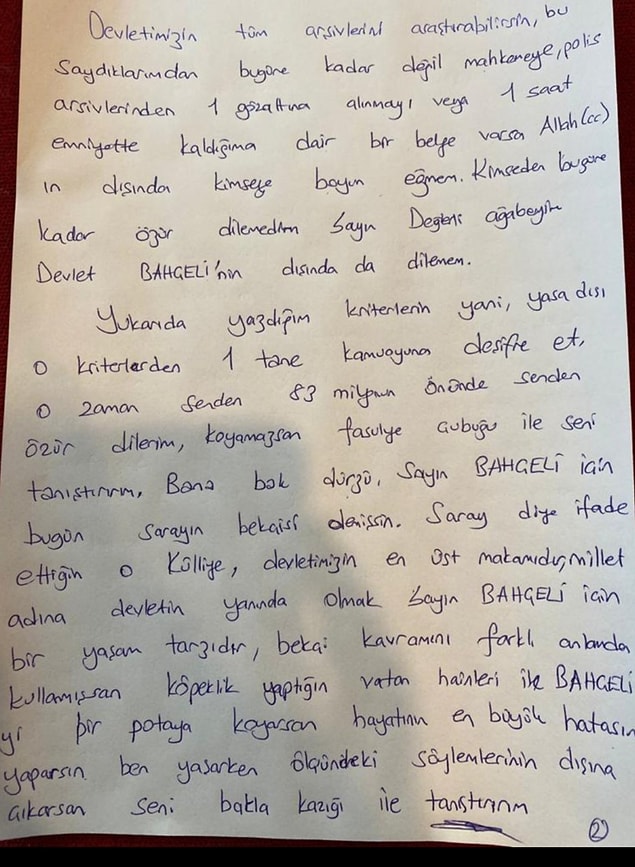 Devletimizin tüm arşivlerini araştırabilirsin, bu
saydıklarımdan bugüne kadar değil mahkemeye, polis
arşivlerinden 1 gözaltına alınmayı veya 1 saat
emniyette kaldığıma dair bir belge varsa Allah (cc)
ın dışında kimseye boyun eğmem. Kimseden bugüne
kadar özür dilemedim Sayın Değerli ağabeyim
Devlet BAHÇELİ'nin dışında da dilemem.
Yukarıda yazdığım kriterlerin yani, yasa dışı
o kriterlerden 1 tane kamuoyuna deşifre et,
o zaman senden 83 milyonun önünde senden
özür dilerim, koyamazsan fasulye çubuğu ile seni
tanıştırırım, Bana bak dürzü, Sayın BAHÇELİ için
bugün sarayın bekçisi demişsin. Saray diye ifade
ettiğin o Külliye, devletimizin en üst makamıdır, millet
adına devletin yanında olmak Sayın BAHÇELİ için
bir yaşam tarzıdır, bekçi kavramını farklı anlamda
kullanmışsan köpeklik yaptığın vatan hainleri ile BAHÇELİ
yi bir potaya koyarsan hayatının en büyük hatasın
yaparsın ben yasarken ölçündeki söylemlerinin dışına
çıkarsan seni bakla kazığı ile tanıştırırım
2